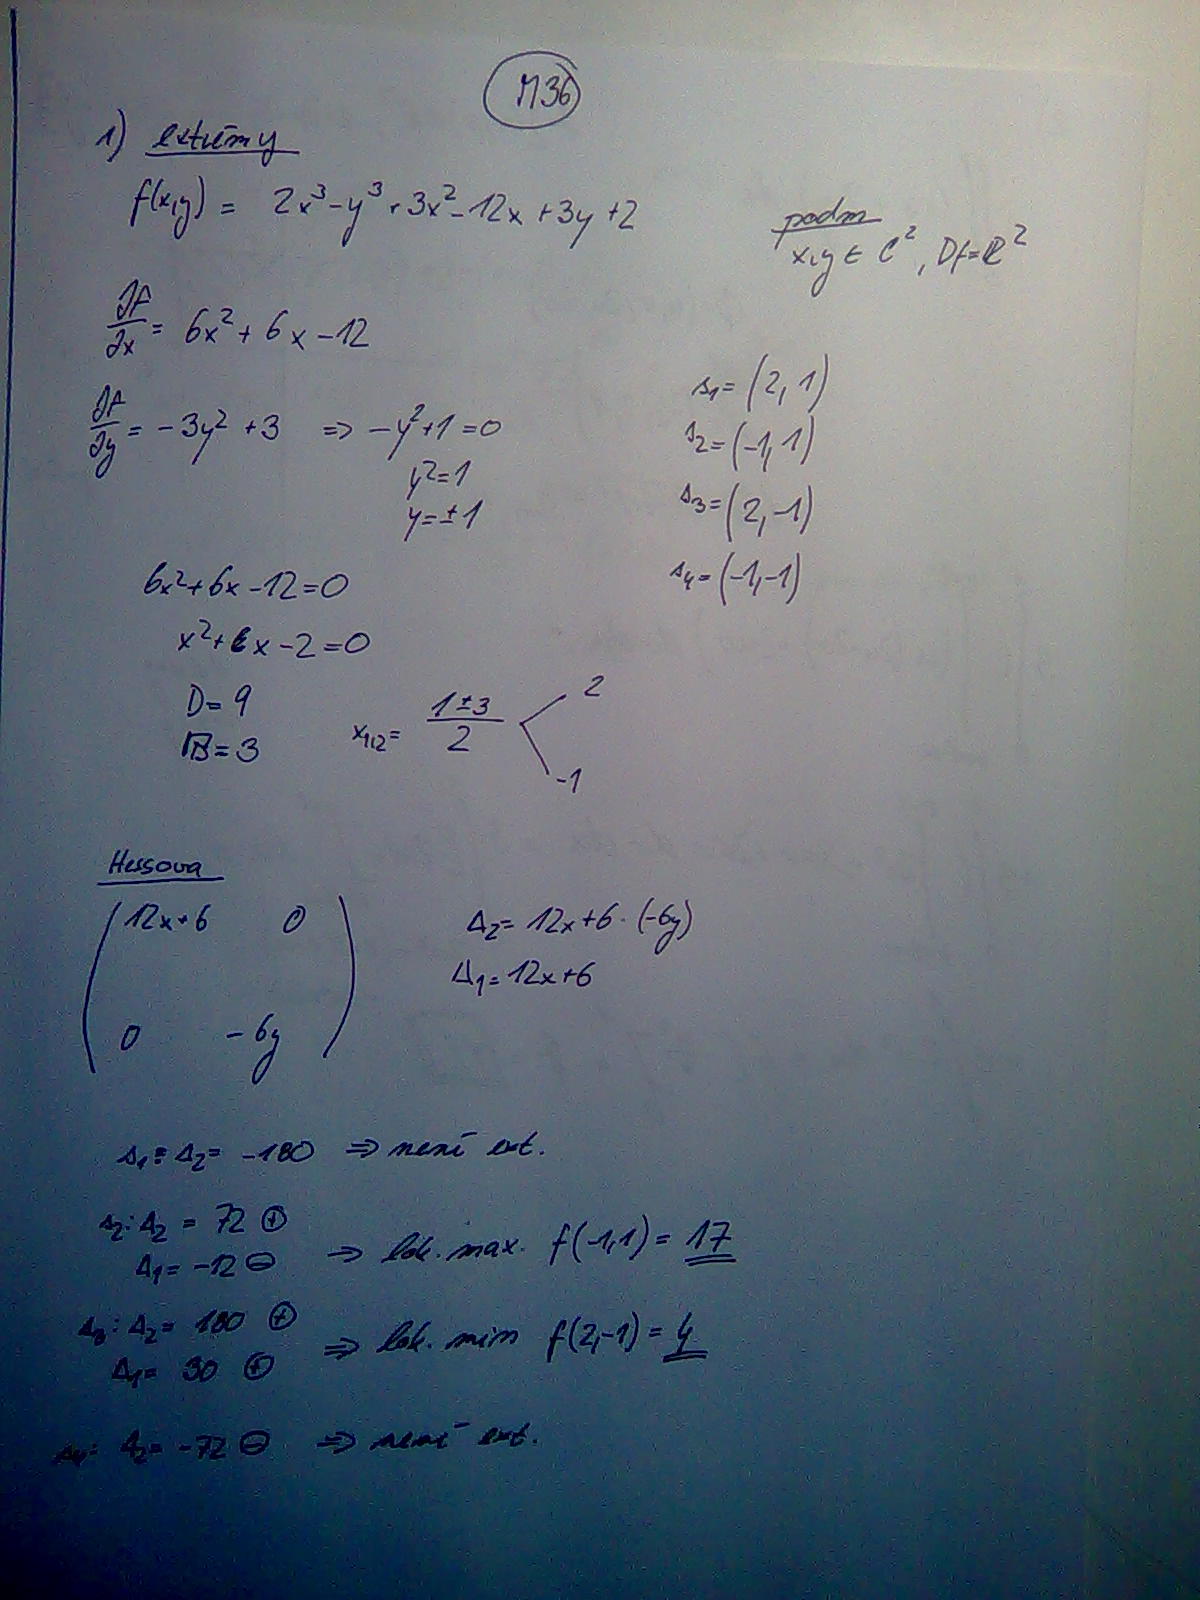 M36
1) extrémy
f(x,y) = 2x³ - y³ + 3x² - 12x + 3y + 2
podm
x,y ∈ C², Df = R²
∂f/∂x = 6x² + 6x - 12
∂f/∂y = -3y² + 3 ⇒ -y² + 1 = 0
y² = 1
y = ±1
s₁ = (2, 1)
s₂ = (-1, 1)
s₃ = (2, -1)
s₄ = (-1, -1)
6x² + 6x - 12 = 0
x² + x - 2 = 0
D = 9
√D = 3
x₁,₂ = (1 ± 3)/2
2
-1
Hessova
12x + 6 0
0 -6y
Δ₂ = 12x + 6 · (-6y)
Δ₁ = 12x + 6
s₁: Δ₂ = -180 ⇒ není ext.
s₂: Δ₂ = 72 ⊕
Δ₁ = -12 ⊖ ⇒ lok. max. f(-1,1) = 17
s₃: Δ₂ = 180 ⊕
Δ₁ = 30 ⊕ ⇒ lok. min f(2,-1) = 4
s₄: Δ₂ = -72 ⊖ ⇒ není ext.